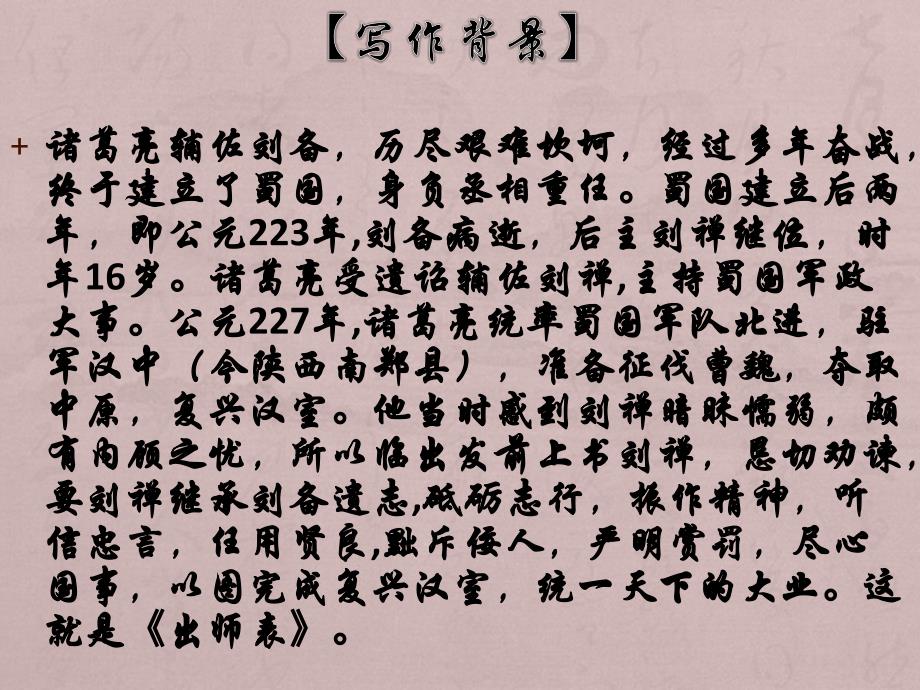 【写作背景】
+ 诸葛亮辅佐刘备，历尽艰难坎坷，经过多年奋战，
终于建立了蜀国，身负丞相重任。蜀国建立后两
年，即公元223年,刘备病逝，后主刘禅继位，时
年16岁。诸葛亮受遗诏辅佐刘禅,主持蜀国军政
大事。公元227年,诸葛亮统率蜀国军队北进，驻
军汉中（今陕西南郑县），准备征伐曹魏，夺取
中原，复兴汉室。他当时感到刘禅暗昧懦弱，颇
有内顾之忧，所以临出发前上书刘禅，恳切劝谏，
要刘禅继承刘备遗志,砥砺志行，振作精神，听
信忠言，任用贤良,黜斥佞人，严明赏罚，尽心
国事，以图完成复兴汉室，统一天下的大业。这
就是《出师表》。